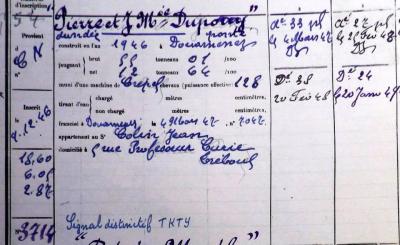 d'inscription
54
"Pierre et J Mée Dupouy"
Provient
C N
dundée ponté
construit en l'an 1946 à Douarnenez
jaugeant
brut 55 tonneaux 01 /100
net 12 tonneaux 64 /100
muni d'une machine de Crepel chevaux (puissance effective) 128
tirant d'eau
non chargé mètres centimètres,
chargé mètres centimètres,
francisé à Douarnenez le 4 Mars 47 n° 7047
appartenant au Sr Colin Jean
domicilié à 5 rue Professeur Curie
Tréboul
Inscrit
9.12.46
18,60
6,05
2,87
N° 3714
Signal distinctif TKTY
Dt 33
4 Mars 47
Dt 27
Dt 38
20 Fev 48
Dt 24